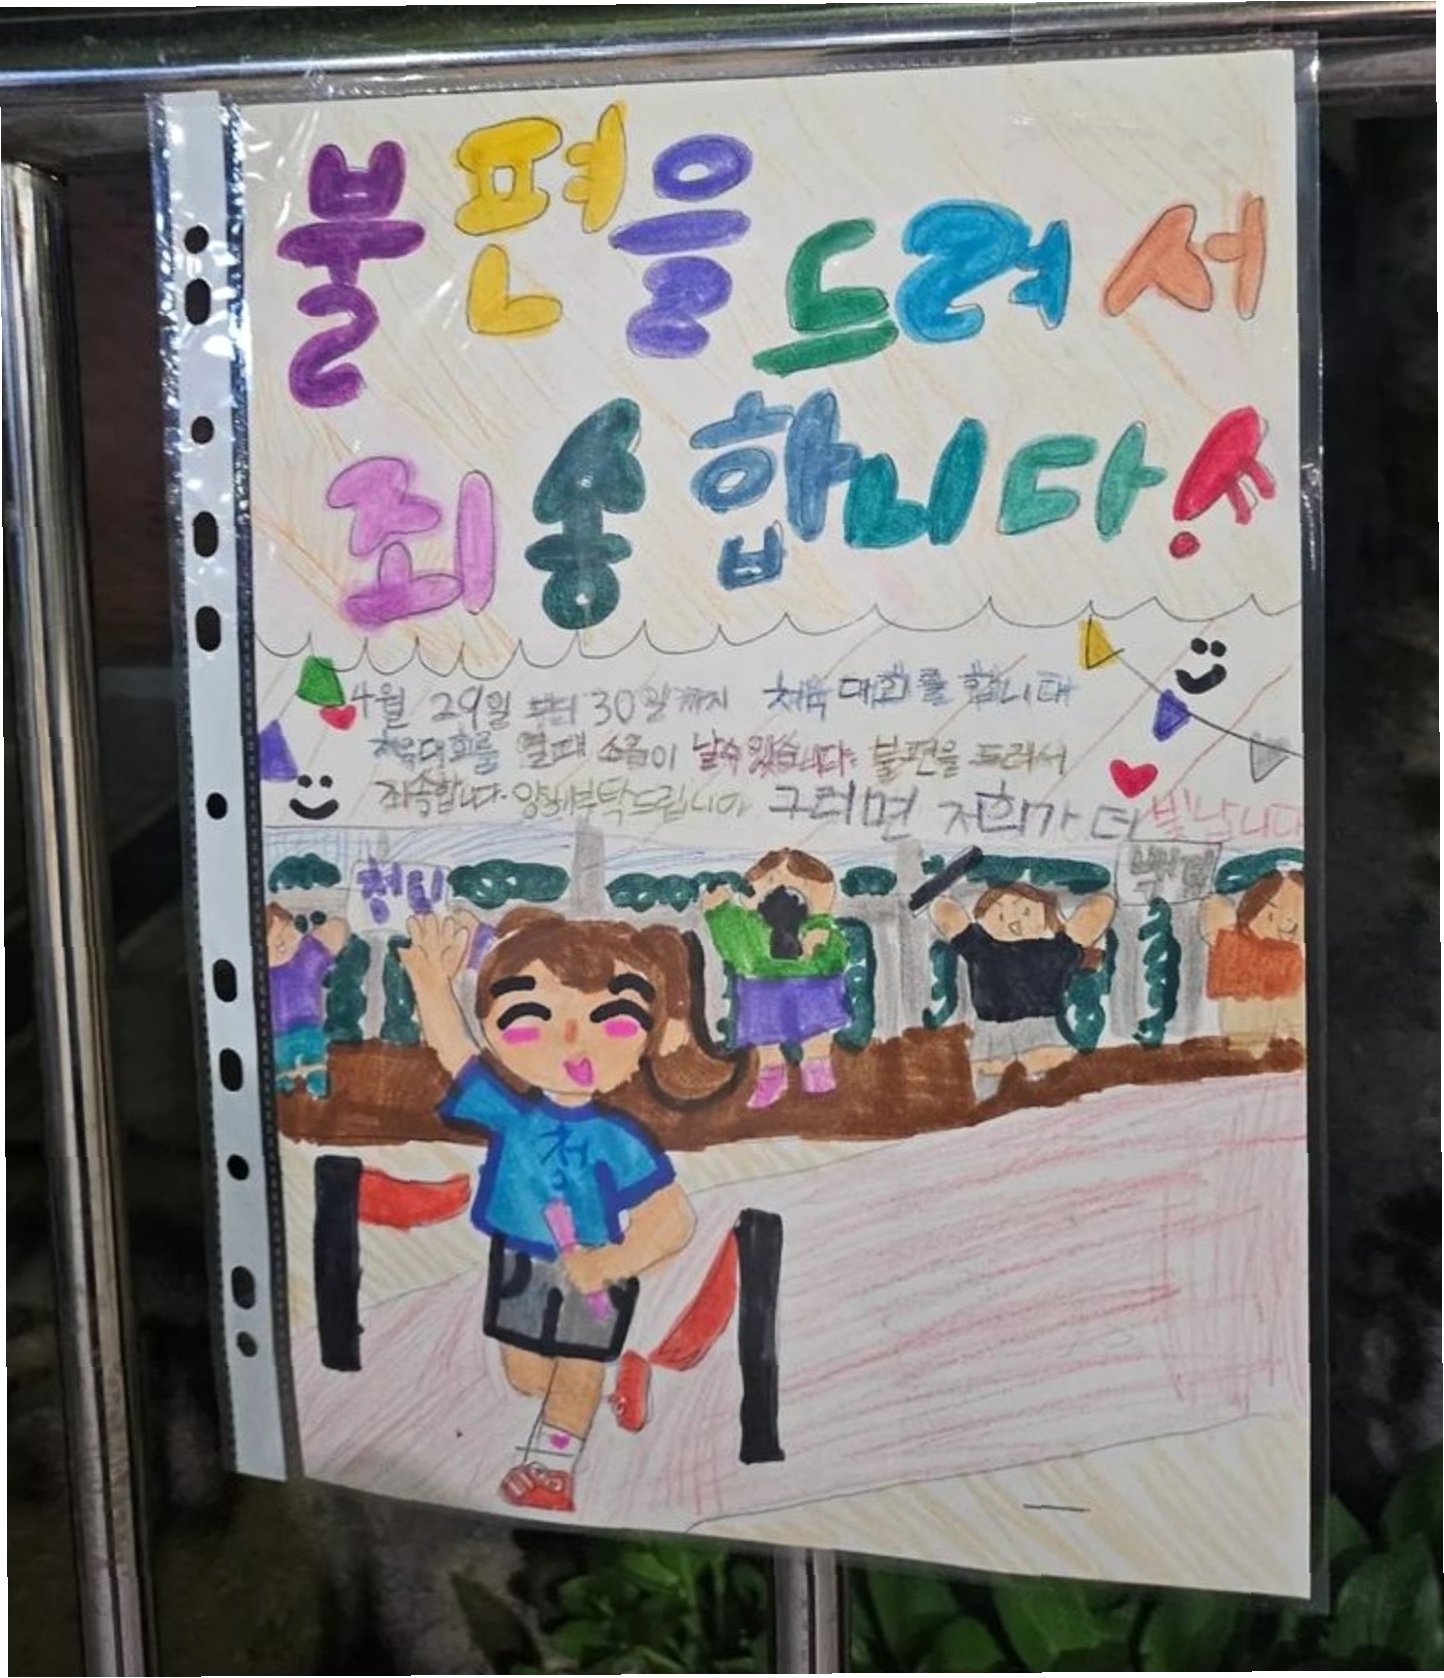 불편을 드려서
죄송합니다!
4월 29일 부터 30일까지 체육대회를 합니다
체육대회를 열때 소음이 날수 있습니다. 불편을 드려서
죄송합니다. 양해부탁드립니다 그러면 저희가 더 빛납니다
청팀
백팀
청